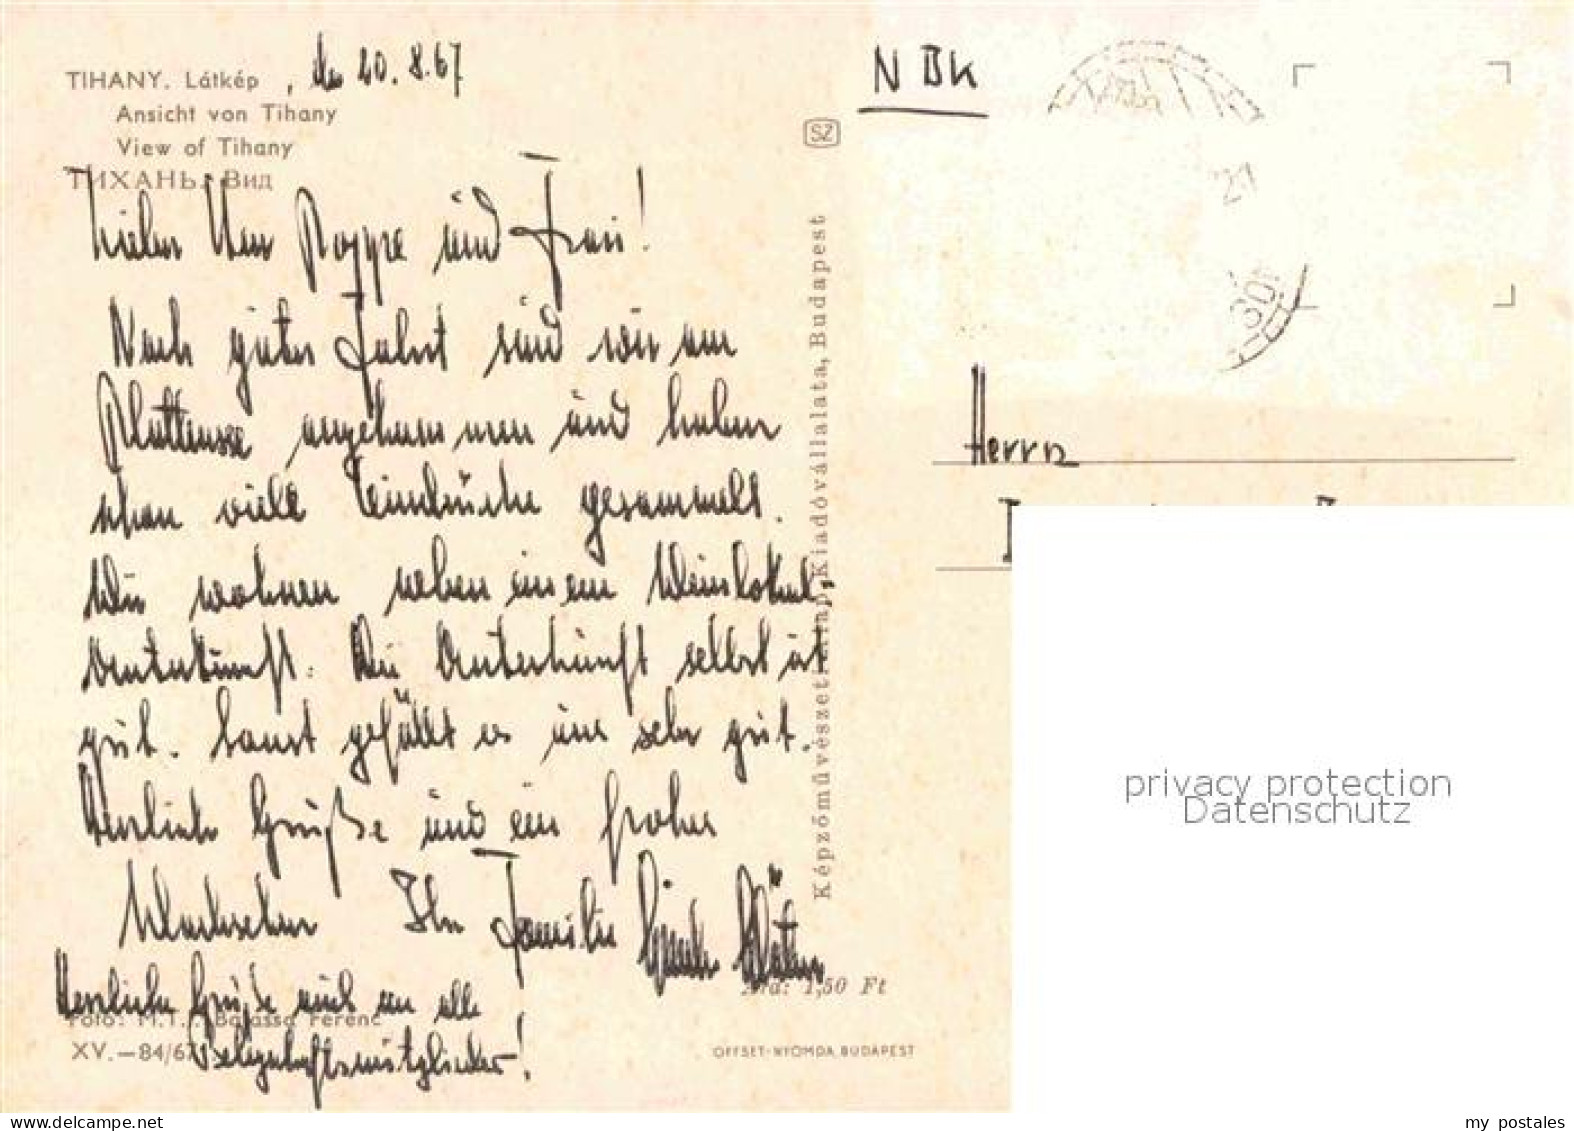 TIHANY. Látkép
Ansicht von Tihany
View of Tihany
ТИХАНЬ. Вид
, den 20.8.67
N BK
SZ
21
Lieber Herr Poppe und Frau!
Nach guter Fahrt sind wir am
Plattensee angekommen und haben
schon viele Eindrücke gesammelt.
Wir wohnen neben einem Weinlokal,
Unterkunft. Die Unterkunft selbst ist
gut. Sonst gefällt es uns sehr gut.
Herzliche Grüße und ein frohes
Wiedersehen Ihre Familie
Herzliche Grüße auch an alle
Belegschaftsmitglieder!
Herrn
Képzőművészeti Alap Kiadóvállalata, Budapest
Ára: 1,50 Ft
Foto: M.T.I. Balassa Ferenc
XV.—84/67
OFFSET-NYOMDA, BUDAPEST
privacy protection
Datenschutz
my postales